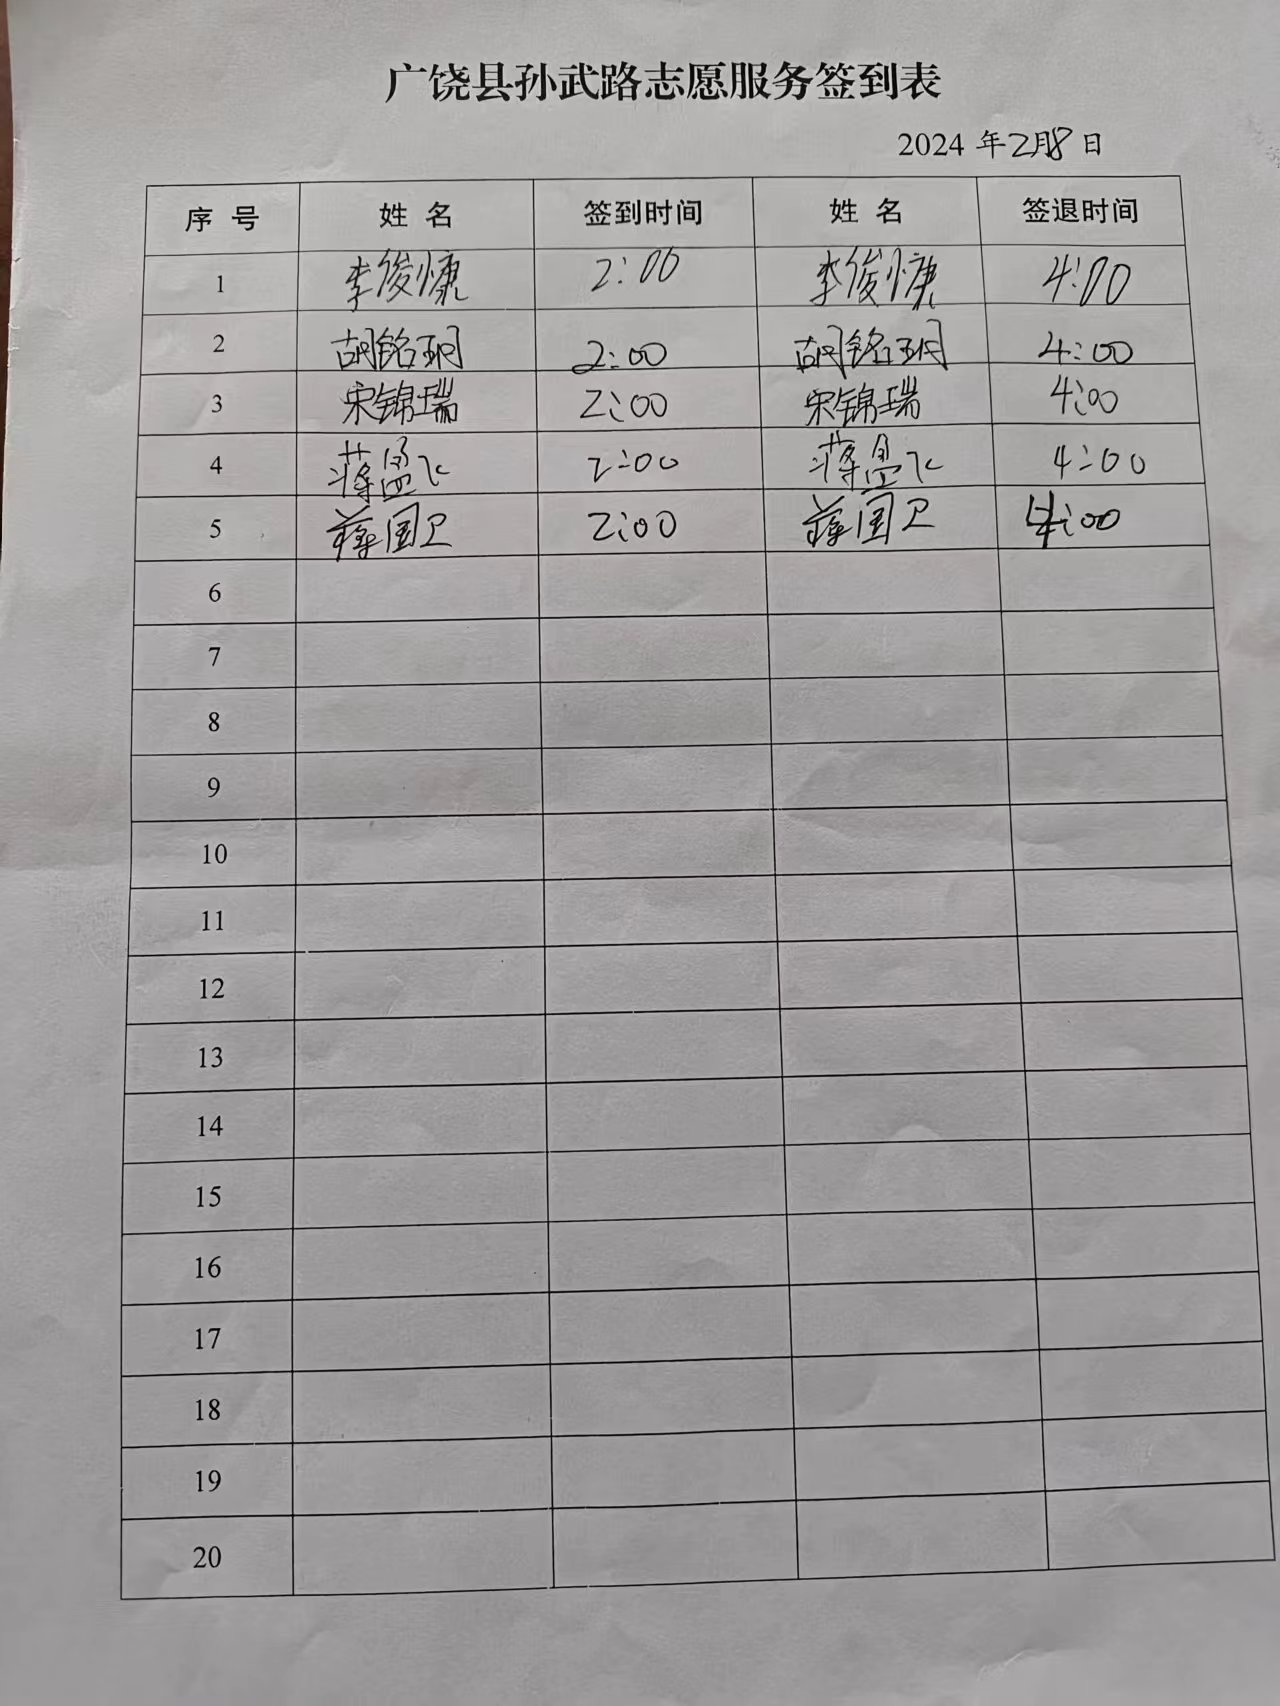 广饶县孙武路志愿服务签到表
2024 年2月8日
序 号 姓 名 签到时间 姓 名 签退时间
1 李俊慷 2:00 李俊慷 4:00
2 胡铭玥 2:00 胡铭玥 4:00
3 宋锦瑞 2:00 宋锦瑞 4:00
4 2:00 4:00
5 蒋国卫 2:00 蒋国卫 4:00
6
7
8
9
10
11
12
13
14
15
16
17
18
19
20